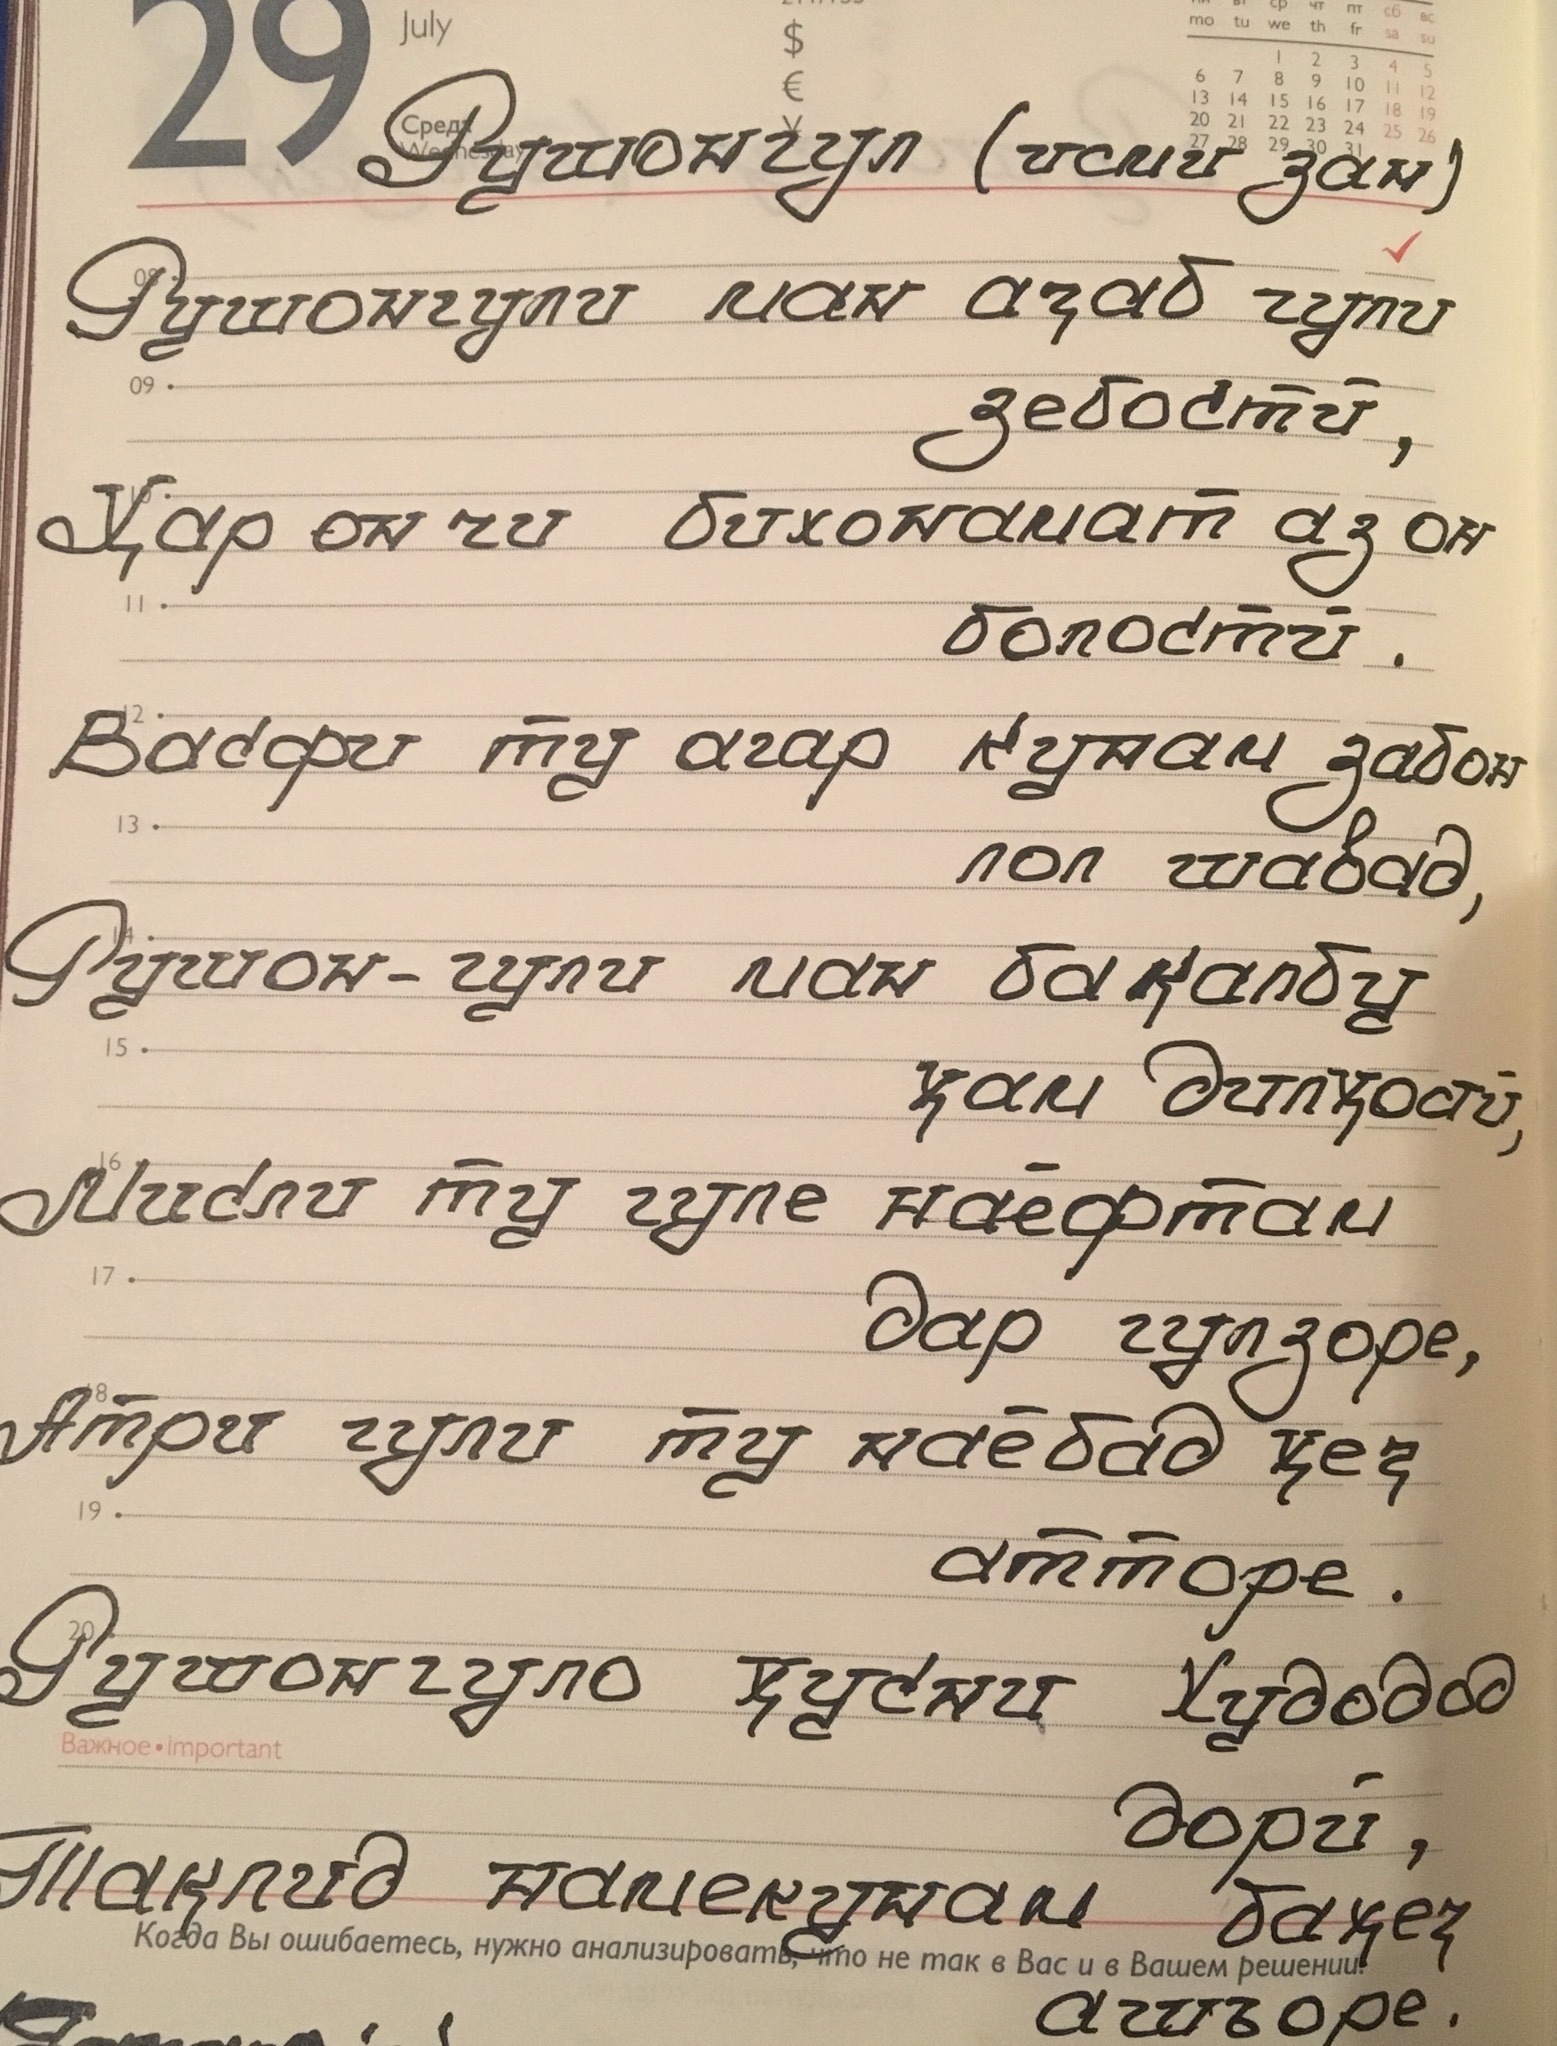 29 July
Среда
Wednesday
$
€
¥
mo tu we th fr sa su
1 2 3 4 5
6 7 8 9 10 11 12
13 14 15 16 17 18 19
20 21 22 23 24 25 26
27 28 29 30 31
Рушонгул (исми зан)
Рушонгули ман аҷаб гули
09
зебостӣ,
Ҳар он чи бихонамат аз он
11
болостӣ.
12
Васфи ту агар кунам забон
13
лол шавад,
14
Рушон-гули ман бақалбу
15
ҳам дилҳостӣ,
16
Мисли ту гуле наёфтам
17
дар гулзоре,
18
Атри гули ту наёбад ҳеҷ
19
атторе.
20
Рушонгуло ҳусни Худодод
Важное•Important
дорӣ,
Тақлид намекунам баҳеҷ
Когда Вы ошибаетесь, нужно анализировать, что не так в Вас и в Вашем решении.
ашъоре.